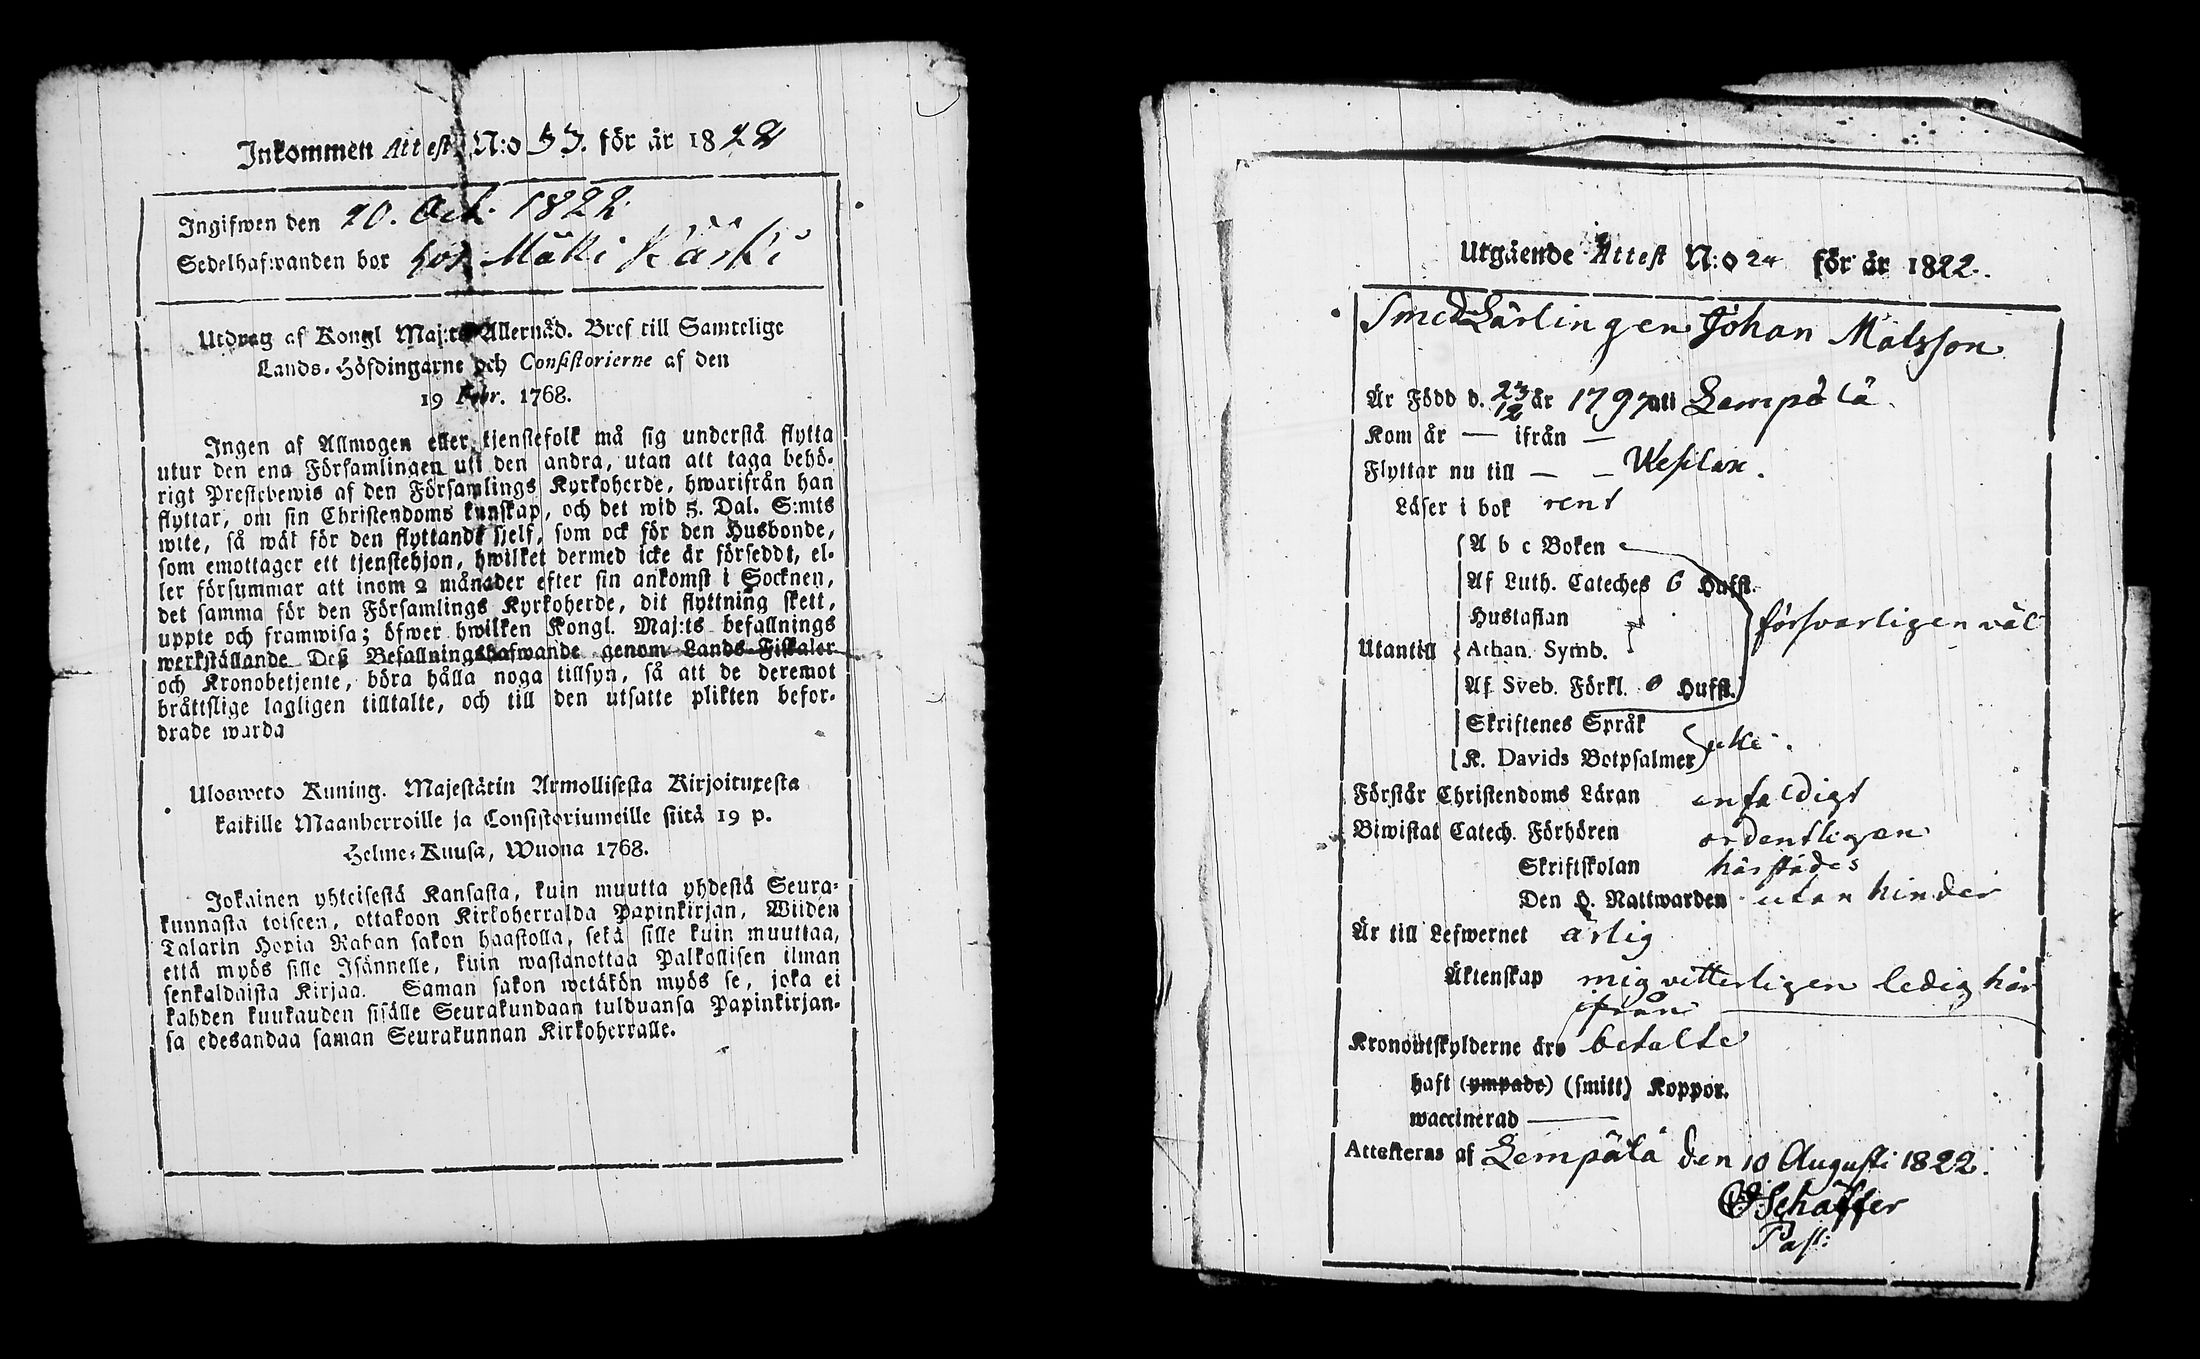 Inkommen Attest N:o 33. för år 1822
Ingifwen den 20. Oct. 1822
Sedelhafwanden bor hos Matti Kärki
Utdrag af Kongl Maj:ts Allernåd. Bref till Samtelige
Lands-Höfdingarne och Consistorierne af den
19 Febr. 1768.
Ingen af Allmogen eller tjenstefolk må sig understå flytta
utur den ena Församlingen uti den andra, utan att taga behö-
rigt Prestebewis af den Församlings Kyrkoherde, hwarifrån han
flyttar, om sin Christendoms kunskap, och det wid 5. Dal. S:mts
wite, så wäl för den flyttande sjelf, som ock för den Husbonde,
som emottager ett tjenstehjon, hwilket dermed icke är förseddt, el-
ler försummar att inom 2 månader efter sin ankomst i Socknen,
det samma för den Församlings Kyrkoherde, dit flyttning skett,
uppte och framwisa; öfwer hwilken Kongl. Maj:ts befallnings
werkställande Deß Befallningshafwande genom Lands-Fiskaler
och Kronobetjente, böra hålla noga tillsyn, så att de deremot
bråttslige lagligen tilltalte, och till den utsatte plikten befor-
drade warda
Ulosweto Kuning. Majestätin Armollisesta Kirjoituxesta
kaikille Maanherroille ja Consistoriumeille siitä 19 p.
Helme-Kuusa, Wuona 1768.
Jokainen yhteisestä Kansasta, kuin muutta yhdestä Seura-
kunnasta toiseen, ottakoon Kirkoherralda Papinkirjan, Wiiden
Talarin Hopia Rahan sakon haastolla, sekä sille kuin muuttaa,
että myös sille Isännelle, kuin wastanottaa Palkollisen ilman
senkaldaista Kirjaa. Saman sakon wetäkön myös se, joka ei
kahden kuukauden sisälle Seurakundaan tulduansa Papinkirjan-
sa edesandaa saman Seurakunnan Kirkoherralle.
Utgående Attest N:o 24 för år 1822.
Smed Lärlingen Johan Matsson
Är Född d. 23/12 år 1797 uti Lempälä
Kom år — ifrån —
Flyttar nu till — — Weßlax.
Läser i bok rent
A b c Boken
Af Luth. Cateches 6 Hufst.
Hustaflan
Utantill Athan. Symb.
försvarligen väl
Af Sveb. Förkl. 0 Hufst.
Skriftenes Språk
K. Davids Botpsalmer icke.
Förstår Christendoms Läran enfaldigt
Biwistat Catech. Förhören ordentligen
Skriftskolan härstädes
Den H. Nattwarden utan hinder
Är till Lefwernet ärlig
Äktenskap mig vitterligen ledig här
ifrån
Kronoutskylderne äro betalte
haft (ympade) (smitt) Koppor.
waccinerad —
Attesteras af Lempälä den 10 Augusti 1822.
Schäffer
Past: